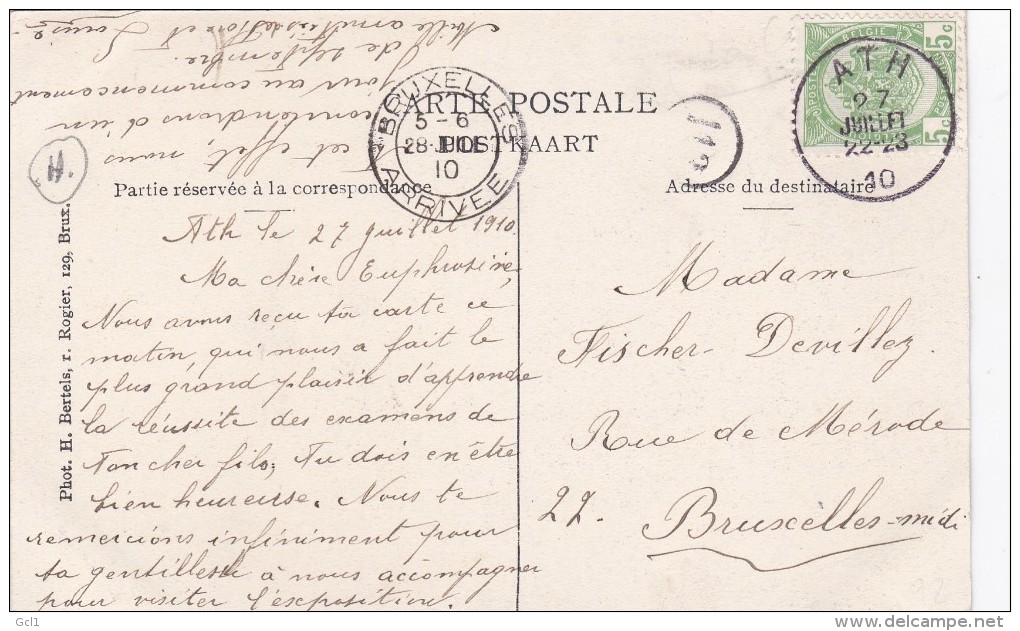 CARTE POSTALE
POSTKAART
Partie réservée à la correspondance
Adresse du destinataire
BELGIE
5c
5c
ATH
27
JUILLET
22-23
10
BRUXELLES
5-6
28-JUIL
10
ARRIVEE
119
H.
Phot. H. Bertels, r. Rogier, 129, Brux.
Ath le 27 juillet 1910.
Ma chère Euphrosine,
Nous avons reçu ta carte ce
matin, qui nous a fait le
plus grand plaisir d'apprendre
la réussite des examens de
ton cher fils, Tu dois en être
bien heureuse. Nous te
remercions infiniment pour
ta gentillesse à nous accompagner
pour visiter l'exposition.
cet effet, nous
conviendrons d'un
jour au commencement
de septembre.
Mille amitiés de
Louise
Madame
Fischer-Devillez
Rue de Mérode
27.
Bruxelles-midi
Gcl1
delcampe.net